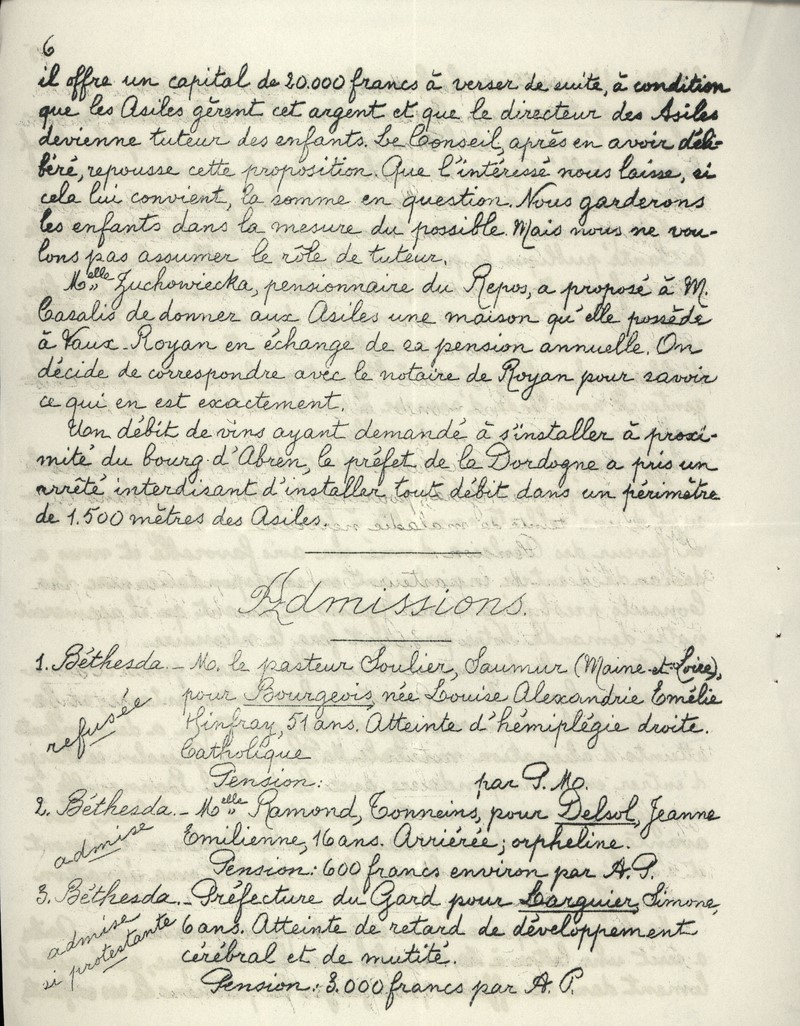 6
il offre un capital de 20.000 francs à verser de suite, à condition
que les Asiles gèrent cet argent et que le directeur des Asiles
devienne tuteur des enfants. Le Conseil, après en avoir déli-
béré, repousse cette proposition. Que l'intéressé nous laisse, si
cela lui convient, la somme en question. Nous garderons
les enfants dans la mesure du possible. Mais nous ne vou-
lons pas assumer le rôle de tuteur.
Melle Zuchowiecka, pensionnaire du Repos, a proposé à M.
Casalis de donner aux Asiles une maison qu'elle possède
à Vaux-Royan en échange de sa pension annuelle. On
décide de correspondre avec le notaire de Royan pour savoir
ce qui en est exactement.
Un débit de vins ayant demandé à s'installer à proxi-
mité du bourg d'Abren, le préfet de la Dordogne a pris un
arrêté interdisant d'installer tout débit dans un périmètre
de 1.500 mètres des Asiles.
Admissions.
1. Béthesda. - M. le pasteur Soulier, Saumur (Maine-et-Loire),
refusée pour Bourgeois, née Louise Alexandrie Emélie
Hinfray, 51 ans. Atteinte d'hémiplégie droite.
Catholique
Pension: par P. M.
2. Béthesda. - Melle Ramond, Tonneins, pour Delsol, Jeanne
admise Emilienne, 16 ans. Arriérée; orpheline.
Pension: 600 francs environ par A. P.
3. Béthesda. - Préfecture du Gard pour Larguier, Simone,
admise 6 ans. Atteinte de retard de développement
si protestante cérébral et de mutité.
Pension: 3.000 francs par A. P.